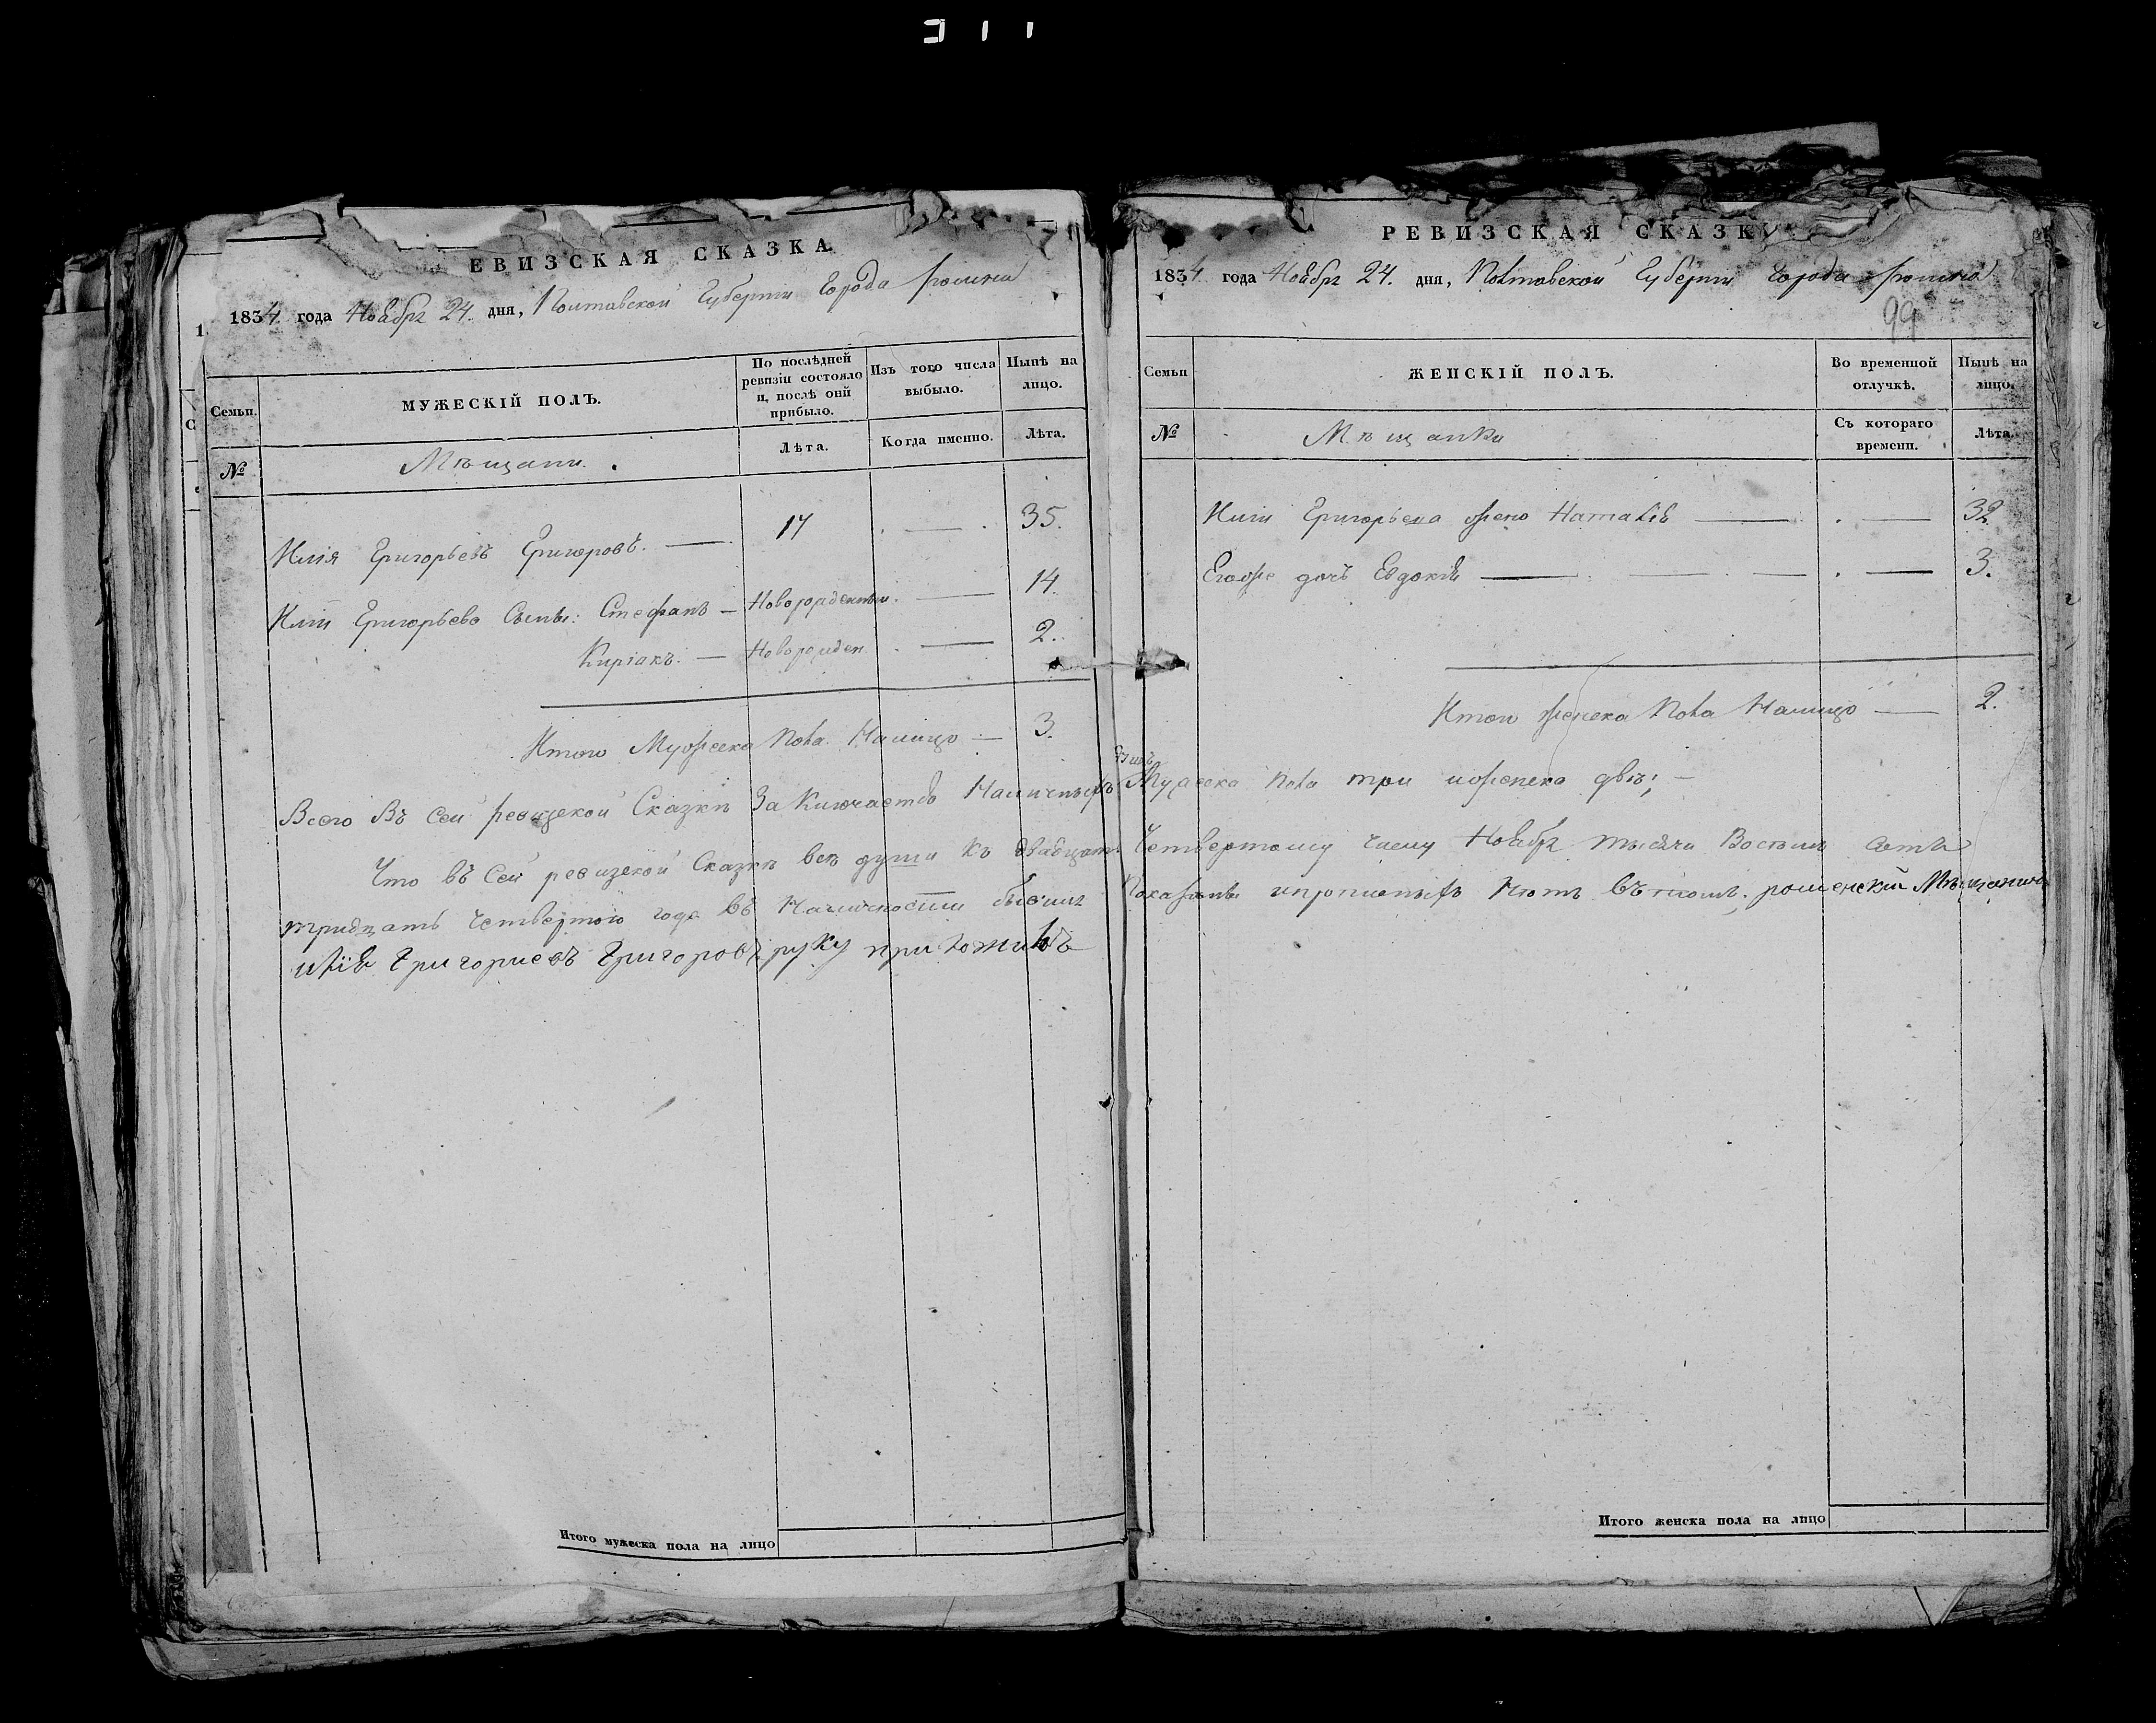 ЕВИЗСКАЯ СКАЗКА
1834 года Ноября 24 дня, Полтавской Губернии Города Ромна
Семьи.
МУЖЕСКІЙ ПОЛЪ.
По послѣдней ревизіи состояло и, послѣ оній прибыло.
Изъ того числа выбыло.
Нынѣ на лицо.
№
Мѣщани.
Лѣта.
Когда именно.
Лѣта.
Илія Григорьевъ Григоровъ. — 17 . — . 35.
Иліи Григорьева Сыны: Стефанъ — Новорожденныи . — 14.
Киріакъ. — Новорожден . — 2.
Итого Мужеска Пола Налицо — 3.
РЕВИЗСКАЯ СКАЗК
1834 года Ноября 24. дня, Полтавской Губернии Города Ромна
99
Семьи
ЖЕНСКІЙ ПОЛЪ.
Во временной отлучкѣ.
Нынѣ на лицо.
№
Мѣщанки
Съ котораго времени.
Лѣта.
Иліи Григорьева жена Наталія — . — 32
Егоже дочь Евдокія — . — 3.
Итого женска Пола Налицо — 2.
Всего Въ Сей ревизской Сказкѣ Заключается Наличныхъ Мужеска пола три иженска двѣ; —
Что въ Сей ревизской Сказкѣ всѣ души къ двадцать Четвертому числу Ноября тысяча Восемь сотъ
тридцать четвертого года въ Наличности бывшия Показаны ипрописныхъ Нѣтъ въ томъ; роменский Мѣщанинъ
илия Григориевъ Григоровъ руку приложилъ
Итого мужеска пола на лицо
Итого женска пола на лицо